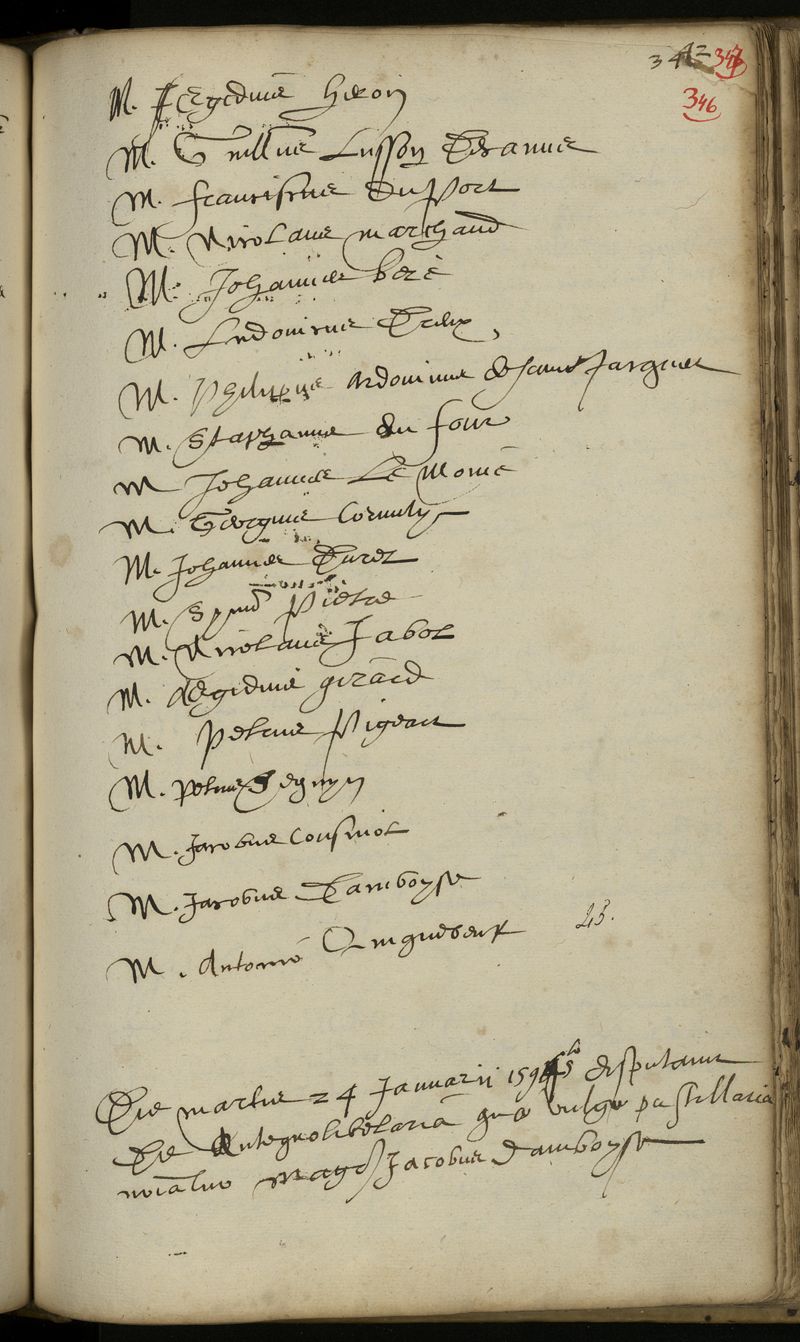 342 347
346
M. Ægidiuſ Heron
M. Guillmus Lusson Decanus
M. franciscus du Port
M. Nicolaus marchand
M. Johannes beré
M. Ludovicus
M. Philippus Ardouinus de sainct Jacques
M. Stephanus du four
M Johannes Le Moine
M. Georgius Cornuty
M. Johannes Duret
M. Simo Pietre
M. Nicolaus Jabot
M. Ægidius girard
M. Petrus Pigeart
M. petrus Seguyn
M. Jacobus Cousinot
M. Jacobus Damboyse
M. Antonius 43.
Die martis 24 Januarii 1595 disputavit
De quæ vulgo pastillaria
Magr Jacobus Damboyse